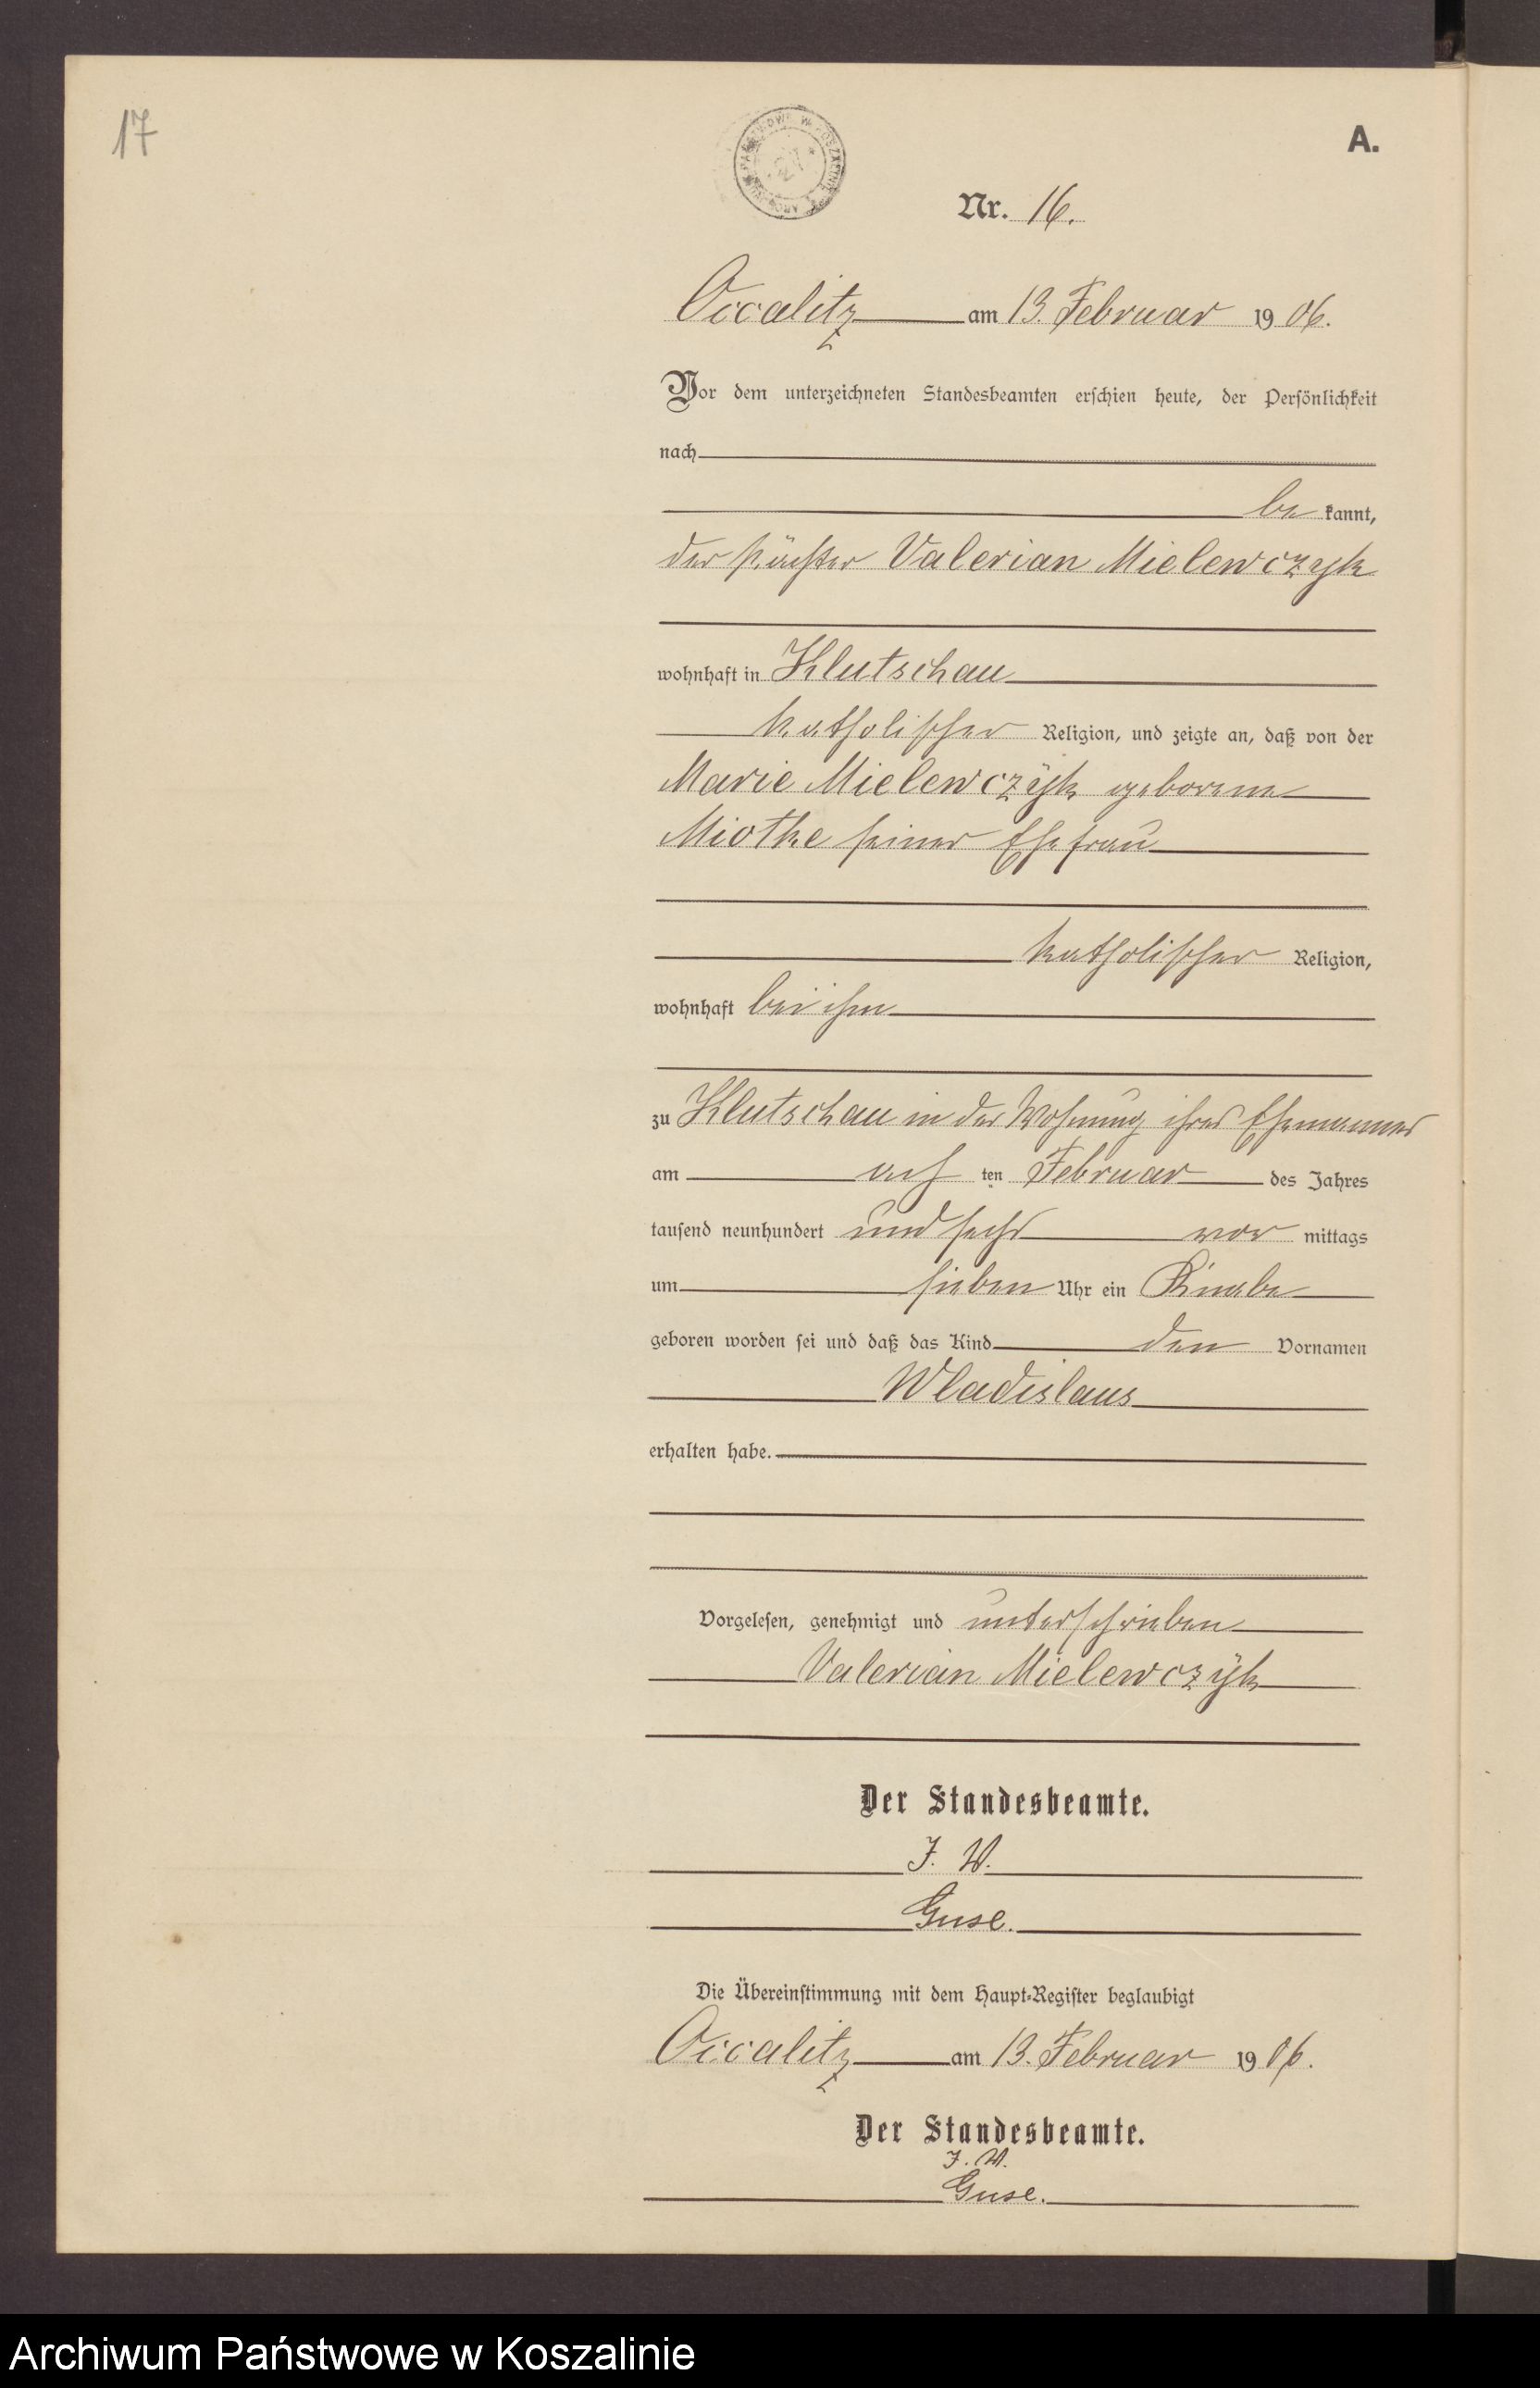 17
A.
Nr. 16.
Occalitz am 13. Februar 1906.
Vor dem unterzeichneten Standesbeamten erschien heute, der Persönlichkeit
nach
be kannt,
der Pächter Valerian Mielewczyk
wohnhaft in Klutschau
katholischer Religion, und zeigte an, daß von der
Marie Mielewczÿk geborene
Miotke seiner Ehefrau
katholischer Religion,
wohnhaft bei ihm
zu Klutschau in der Wohnung ihres Ehemannes
am acht ten Februar des Jahres
tausend neunhundert und sechs vor mittags
um sieben Uhr ein Knabe
geboren worden sei und daß das Kind den Vornamen
Wladislaus
erhalten habe.
Vorgelesen, genehmigt und unterschrieben
Valerian Mielewczÿk
Der Standesbeamte.
J. V.
Guse.
Die Übereinstimmung mit dem Haupt-Register beglaubigt
Occalitz am 13. Februar 1906.
Der Standesbeamte.
J. V.
Guse.
Archiwum Państwowe w Koszalinie